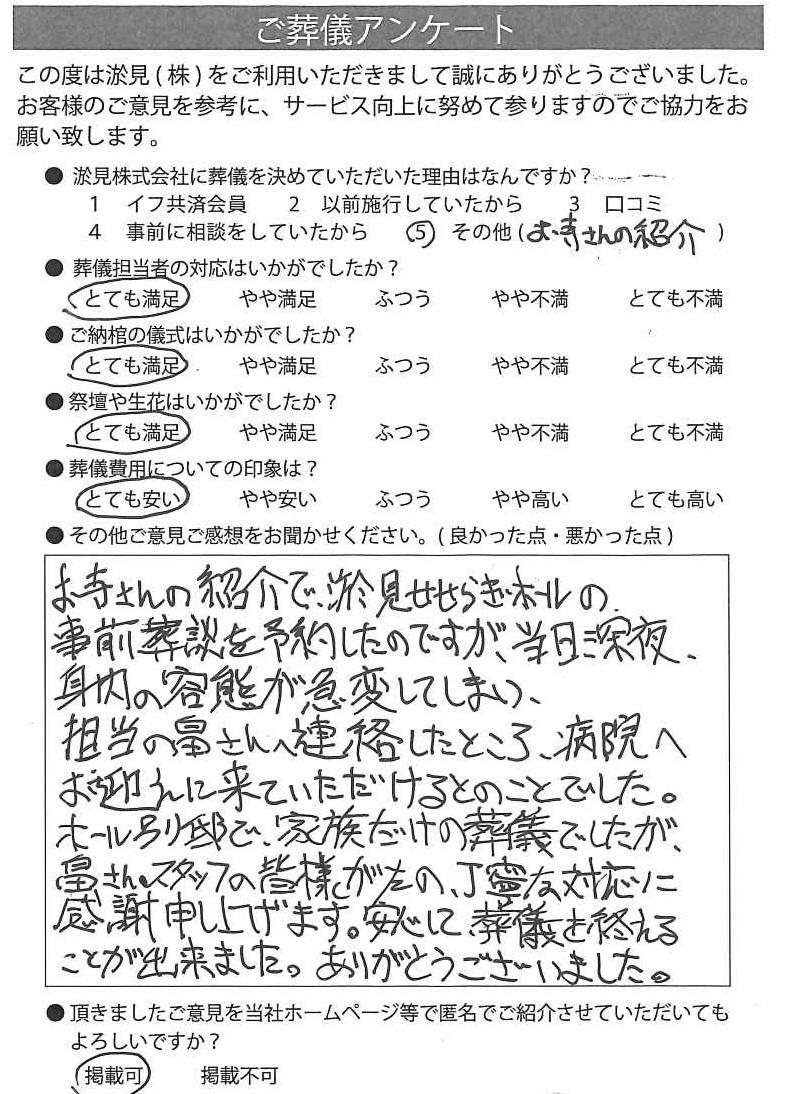 ご葬儀アンケート
この度は淤見(株)をご利用いただきまして誠にありがとうございました。
お客様のご意見を参考に、サービス向上に努めて参りますのでご協力をお
願い致します。
● 淤見株式会社に葬儀を決めていただいた理由はなんですか？
1 イフ共済会員 2 以前施行していたから 3 口コミ
4 事前に相談をしていたから ⑤ その他(お寺さんの紹介 )
● 葬儀担当者の対応はいかがでしたか？
とても満足 やや満足 ふつう やや不満 とても不満
● ご納棺の儀式はいかがでしたか？
とても満足 やや満足 ふつう やや不満 とても不満
● 祭壇や生花はいかがでしたか？
とても満足 やや満足 ふつう やや不満 とても不満
● 葬儀費用についての印象は？
とても安い やや安い ふつう やや高い とても高い
● その他ご意見ご感想をお聞かせください。(良かった点・悪かった点)
お寺さんの紹介で、淤見せせらぎホールの
事前葬談を予約したのですが、当日深夜、
身内の容態が急変してしまい、
担当の畠さんへ連絡したところ、病院へ
お迎えに来ていただけるとのことでした。
ホール別邸で、家族だけの葬儀でしたが、
畠さん。スタッフの皆様がたの、丁寧な対応に
感謝申し上げます。安心して、葬儀を終える
ことが出来ました。ありがとうございました。
● 頂きましたご意見を当社ホームページ等で匿名でご紹介させていただいても
よろしいですか？
掲載可 掲載不可